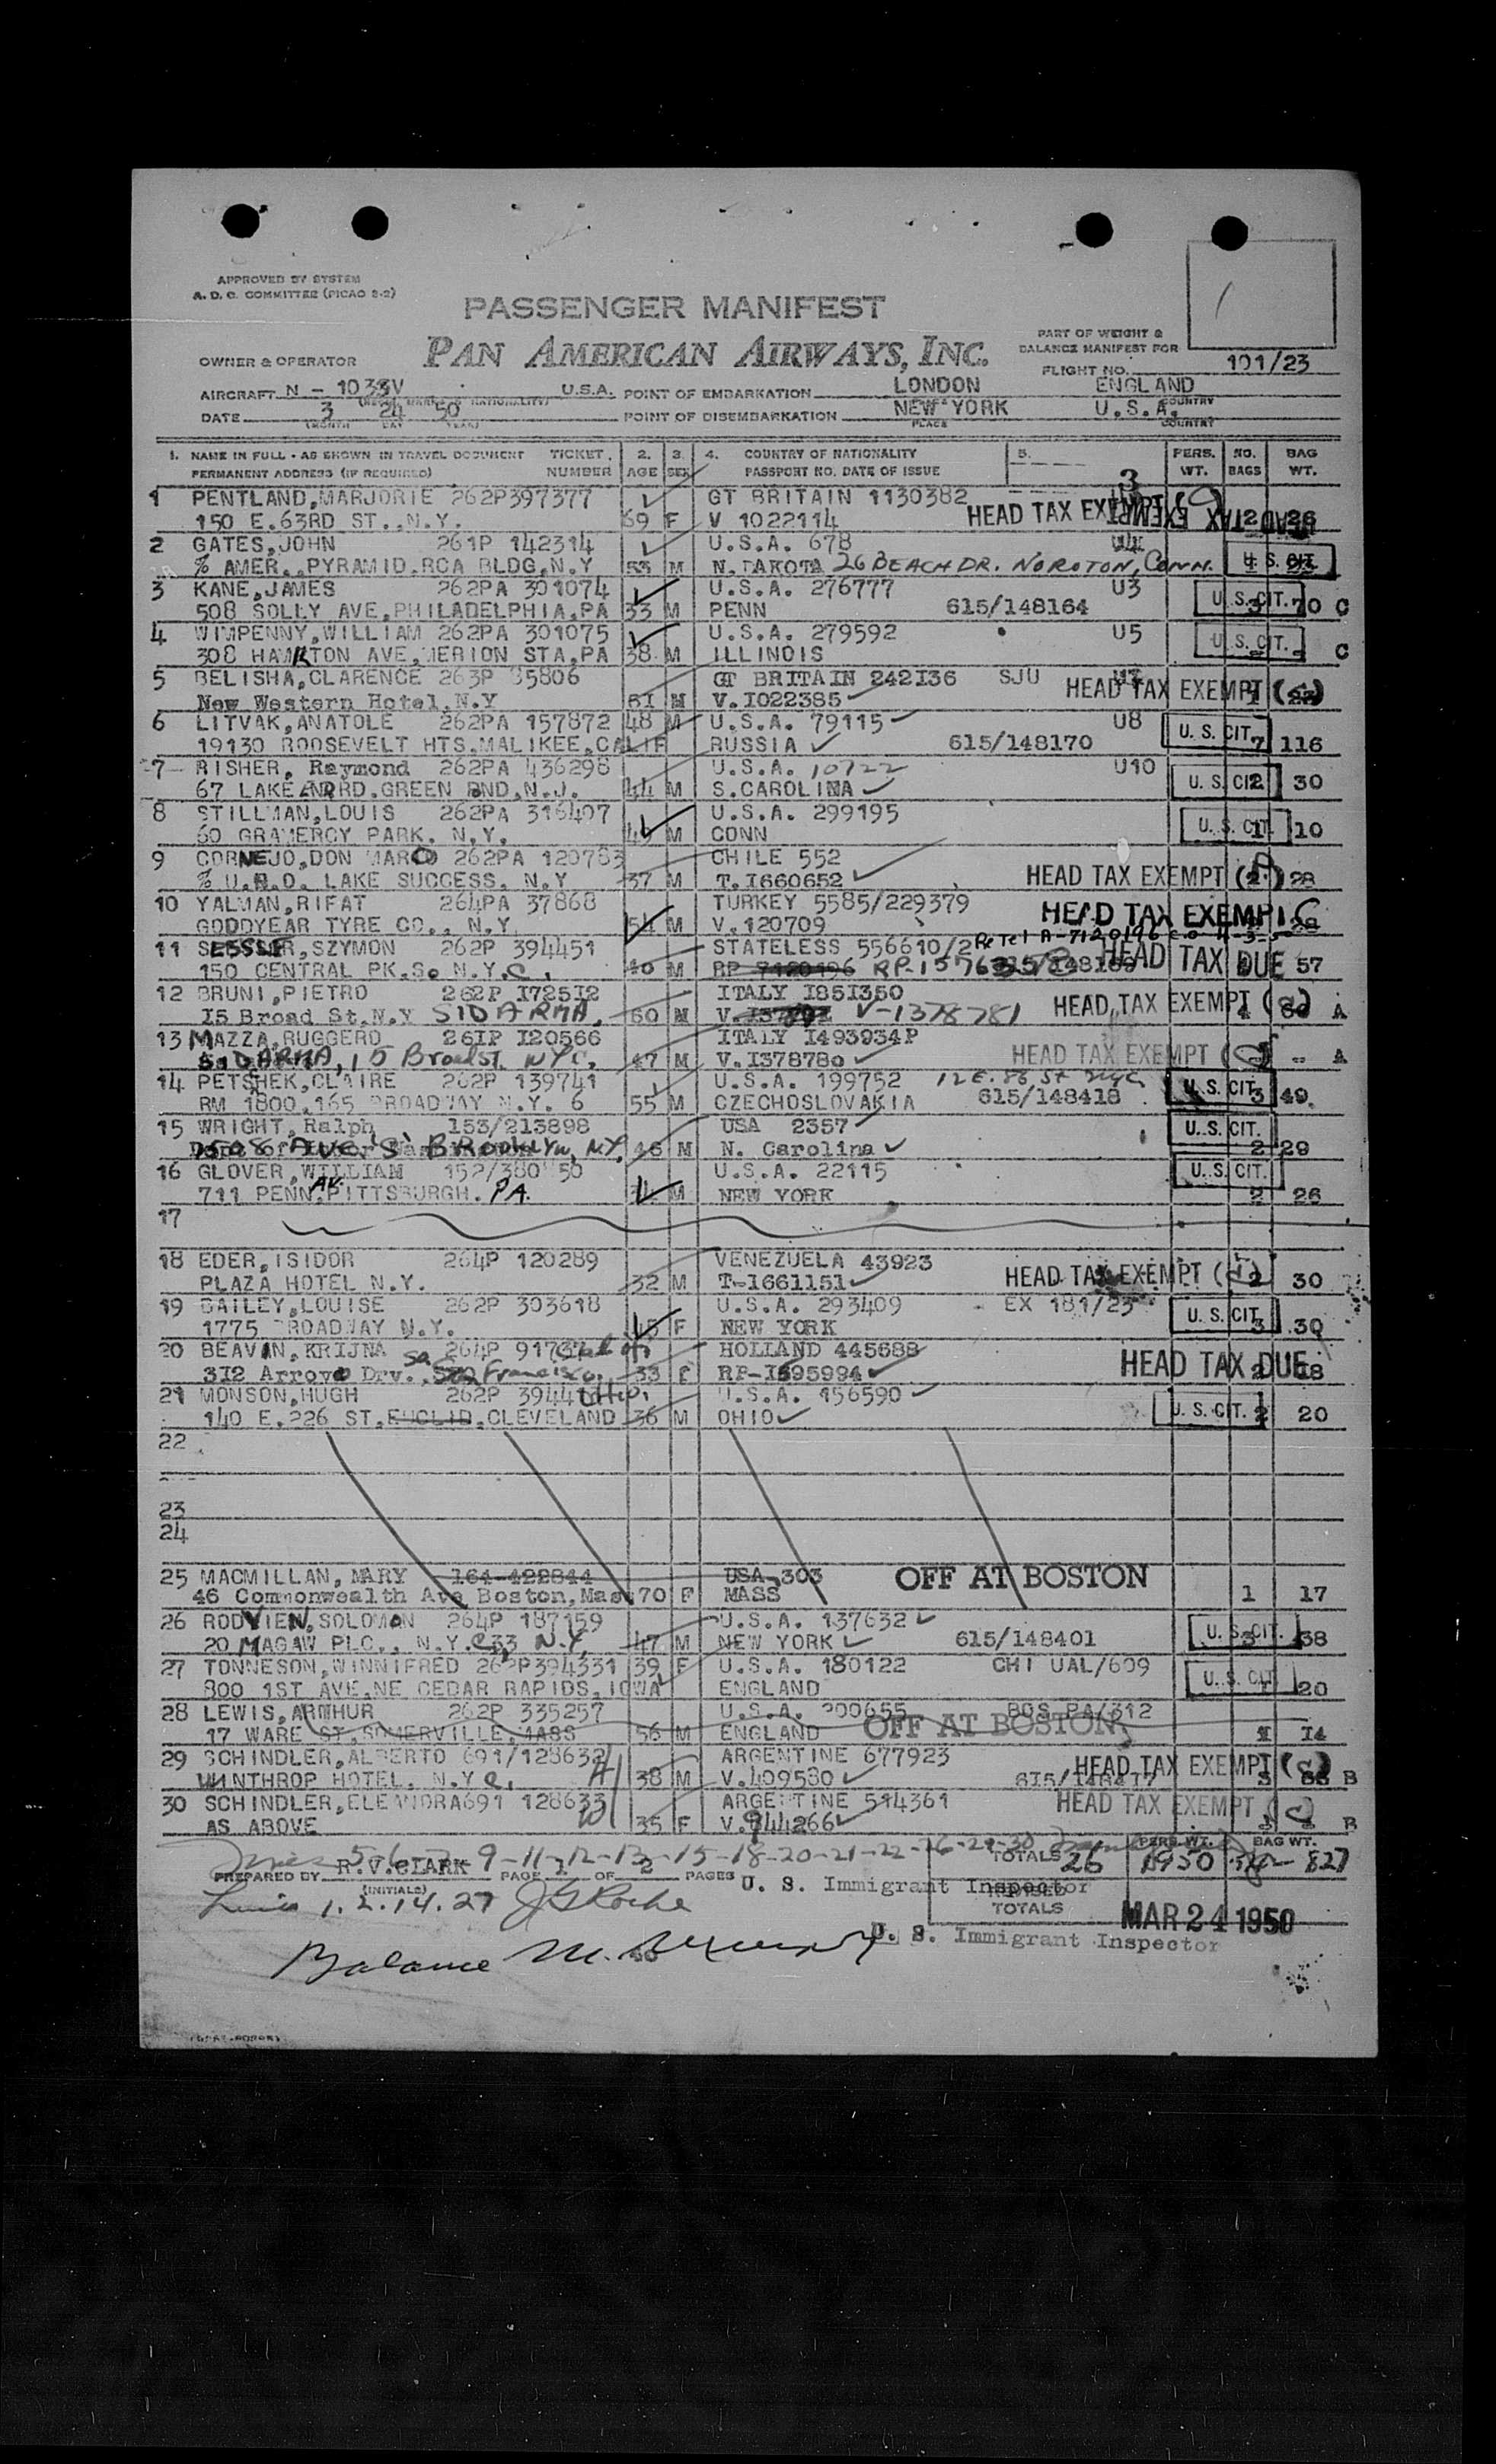 APPROVED BY SYSTEM
A. D. C. COMMITTEE (PICAO 2-2)
PASSENGER MANIFEST
PAN AMERICAN AIRWAYS, INC.
PART OF WEIGHT &
BALANCE MANIFEST FOR
OWNER & OPERATOR
FLIGHT NO. 101/23
AIRCRAFT N - 1033V U.S.A. POINT OF EMBARKATION LONDON ENGLAND
DATE 3 24 50 POINT OF DISEMBARKATION NEW YORK U.S.A.
(MONTH DAY YEAR) PLACE COUNTRY
1. NAME IN FULL - AS SHOWN IN TRAVEL DOCUMENT TICKET 2. 3. 4. COUNTRY OF NATIONALITY 5. PERS. NO. BAG
PERMANENT ADDRESS (IF REQUIRED) NUMBER AGE SEX PASSPORT NO. DATE OF ISSUE WT. BAGS WT.
1 PENTLAND, MARJORIE 262P397377 GT BRITAIN 1130382 3
150 E.63RD ST., N.Y. 69 F V 1022114 HEAD TAX EXEMPT 2 26
2 GATES, JOHN 261P 142314 U.S.A. 678 U4
% AMER. PYRAMID.RCA BLDG,N.Y 53 M N.DAKOTA 26 BEACH DR. NOROTON, CONN. U.S.CIT.
3 KANE, JAMES 262PA 301074 U.S.A. 276777 U3
508 SOLLY AVE, PHILADELPHIA, PA 33 M PENN 615/148164 U.S.CIT. 3 70 C
4 WIMPENNY, WILLIAM 262PA 301075 U.S.A. 279592 U5 U.S.CIT.
308 HAMILTON AVE, MERION STA, PA 38 M ILLINOIS C
5 BELISHA, CLARENCE 263P 35806 GT BRITAIN 242I36 SJU
New Western Hotel, N.Y 61 M V.I022385 HEAD TAX EXEMPT
6 LITVAK, ANATOLE 262PA 157872 48 M U.S.A. 79115 U8 U.S.CIT.
19130 ROOSEVELT HTS.MALIKEE, CALIF RUSSIA 615/148170 7 116
7 RISHER, Raymond 262PA 436298 U.S.A. 10722 U10
67 LAKE END RD.GREEN PND, N.J. 44 M S.CAROLINA U.S.CIT. 2 30
8 STILLMAN, LOUIS 262PA 316407 U.S.A. 299195
60 GRAMERCY PARK. N.Y. M CONN U.S.CIT. 1 10
9 CORNEJO, DON MARCO 262PA 120783 CHILE 552
% U.N.O. LAKE SUCCESS. N.Y 37 M T.I660652 HEAD TAX EXEMPT 28
10 YALMAN, RIFAT 264PA 37868 TURKEY 5585/229379
GOODYEAR TYRE CO., N.Y 54 M V.120709 HEAD TAX EXEMPT 28
11 SZYMON 262P 394451 STATELESS 556610/2 Re Tel A-7120196
150 CENTRAL PK.So N.Y.C. 40 M RP 7120196 HEAD TAX DUE 57
12 BRUNI, PIETRO 262P I725I2 ITALY I85I350
I5 Broad St. N.Y SIDARMA. 60 M V-1378781 HEAD TAX EXEMPT A
13 MAZZA, RUGGERO 26IP I20566 ITALY I493934P
SIDARMA, 15 Broad St. NYC. 47 M V.I378780 HEAD TAX EXEMPT A
14 PETSCHEK, CLAIRE 262P 139741 U.S.A. 199752 12 E. 88 St NYC
RM 1800.165 BROADWAY N.Y. 6 55 M CZECHOSLOVAKIA 615/148418 U.S.CIT. 3 49
15 WRIGHT, Ralph 153/213898 USA 2357 U.S.CIT.
1508 AVE 'S' BROOKLYN, NY. 46 M N. Carolina 2 29
16 GLOVER, WILLIAM U.S.A. 22115 U.S.CIT.
711 PENN AV. PITTSBURGH. PA. M NEW YORK 2 26
17
18 EDER, ISIDOR 264P 120289 VENEZUELA 43923
PLAZA HOTEL N.Y. 32 M T-1661151 HEAD TAX EXEMPT 2 30
19 BAILEY, LOUISE 262P 303618 U.S.A. 293409 EX 181/23 U.S.CIT.
1775 BROADWAY N.Y. 45 F NEW YORK 3 30
20 BEAVAN, KRIJNA 264P HOLLAND 445688
3I2 Arroyo Drv., San Francisco. 33 F RP-I595994 HEAD TAX DUE 2 18
21 MONSON, HUGH 262P U.S.A. 156590
140 E.226 ST. EUCLID, CLEVELAND Ohio. 36 M OHIO U.S.CIT. 2 20
22
23
24
25 MACMILLAN, MARY 164-422844 USA 303 OFF AT BOSTON
46 Commonwealth Ave Boston, Mass 70 F MASS 1 17
26 RODVIEN, SOLOMON 264P 187159 U.S.A. 137632
20 MAGAW PLC., N.Y.C. 33 N.Y. 47 M NEW YORK 615/148401 U.S.CIT. 3 38
27 TONNESON, WINNIFRED 262P394331 39 F U.S.A. 180122 CHI UAL/609
800 1ST AVE.NE CEDAR RAPIDS, IOWA ENGLAND U.S.CIT. 20
28 LEWIS, ARTHUR 262P 335257 U.S.A. 200655 BOS PA/312
17 WARE ST.SOMERVILLE, MASS 56 M ENGLAND OFF AT BOSTON 1 14
29 SCHINDLER, ALBERTO 691/128632 ARGENTINE 677923
WINTHROP HOTEL. N.Y.C. 38 M V.409580 615/148417 HEAD TAX EXEMPT B
30 SCHINDLER, ELEANDRA 691 128633 ARGENTINE 514361 HEAD TAX EXEMPT
AS ABOVE 35 F V.944266 B
PERS. WT. BAG WT.
TOTALS 26 827
PREPARED BY R.V.CLARK PAGE 1 OF 2 PAGES
(INITIALS) U. S. Immigrant Inspector
TOTALS
MAR 24 1950
U. S. Immigrant Inspector
Balance